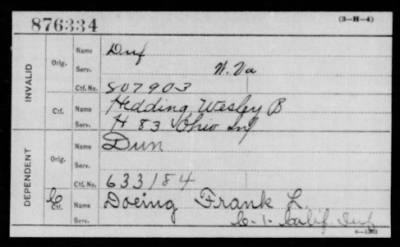 876334
(3-H-4)
INVALID
Orig.
Name Duf
Serv. W. Va
Ctf. No. 807903
Ctf.
Name Hedding Wesley B
Serv. H 83 Ohio Inf
DEPENDENT
Orig.
Name Dun
Serv.
Ctf. No. 633184
C
Ctf.
Name Doeing Frank L.
Serv. C. 1. Calif Inf